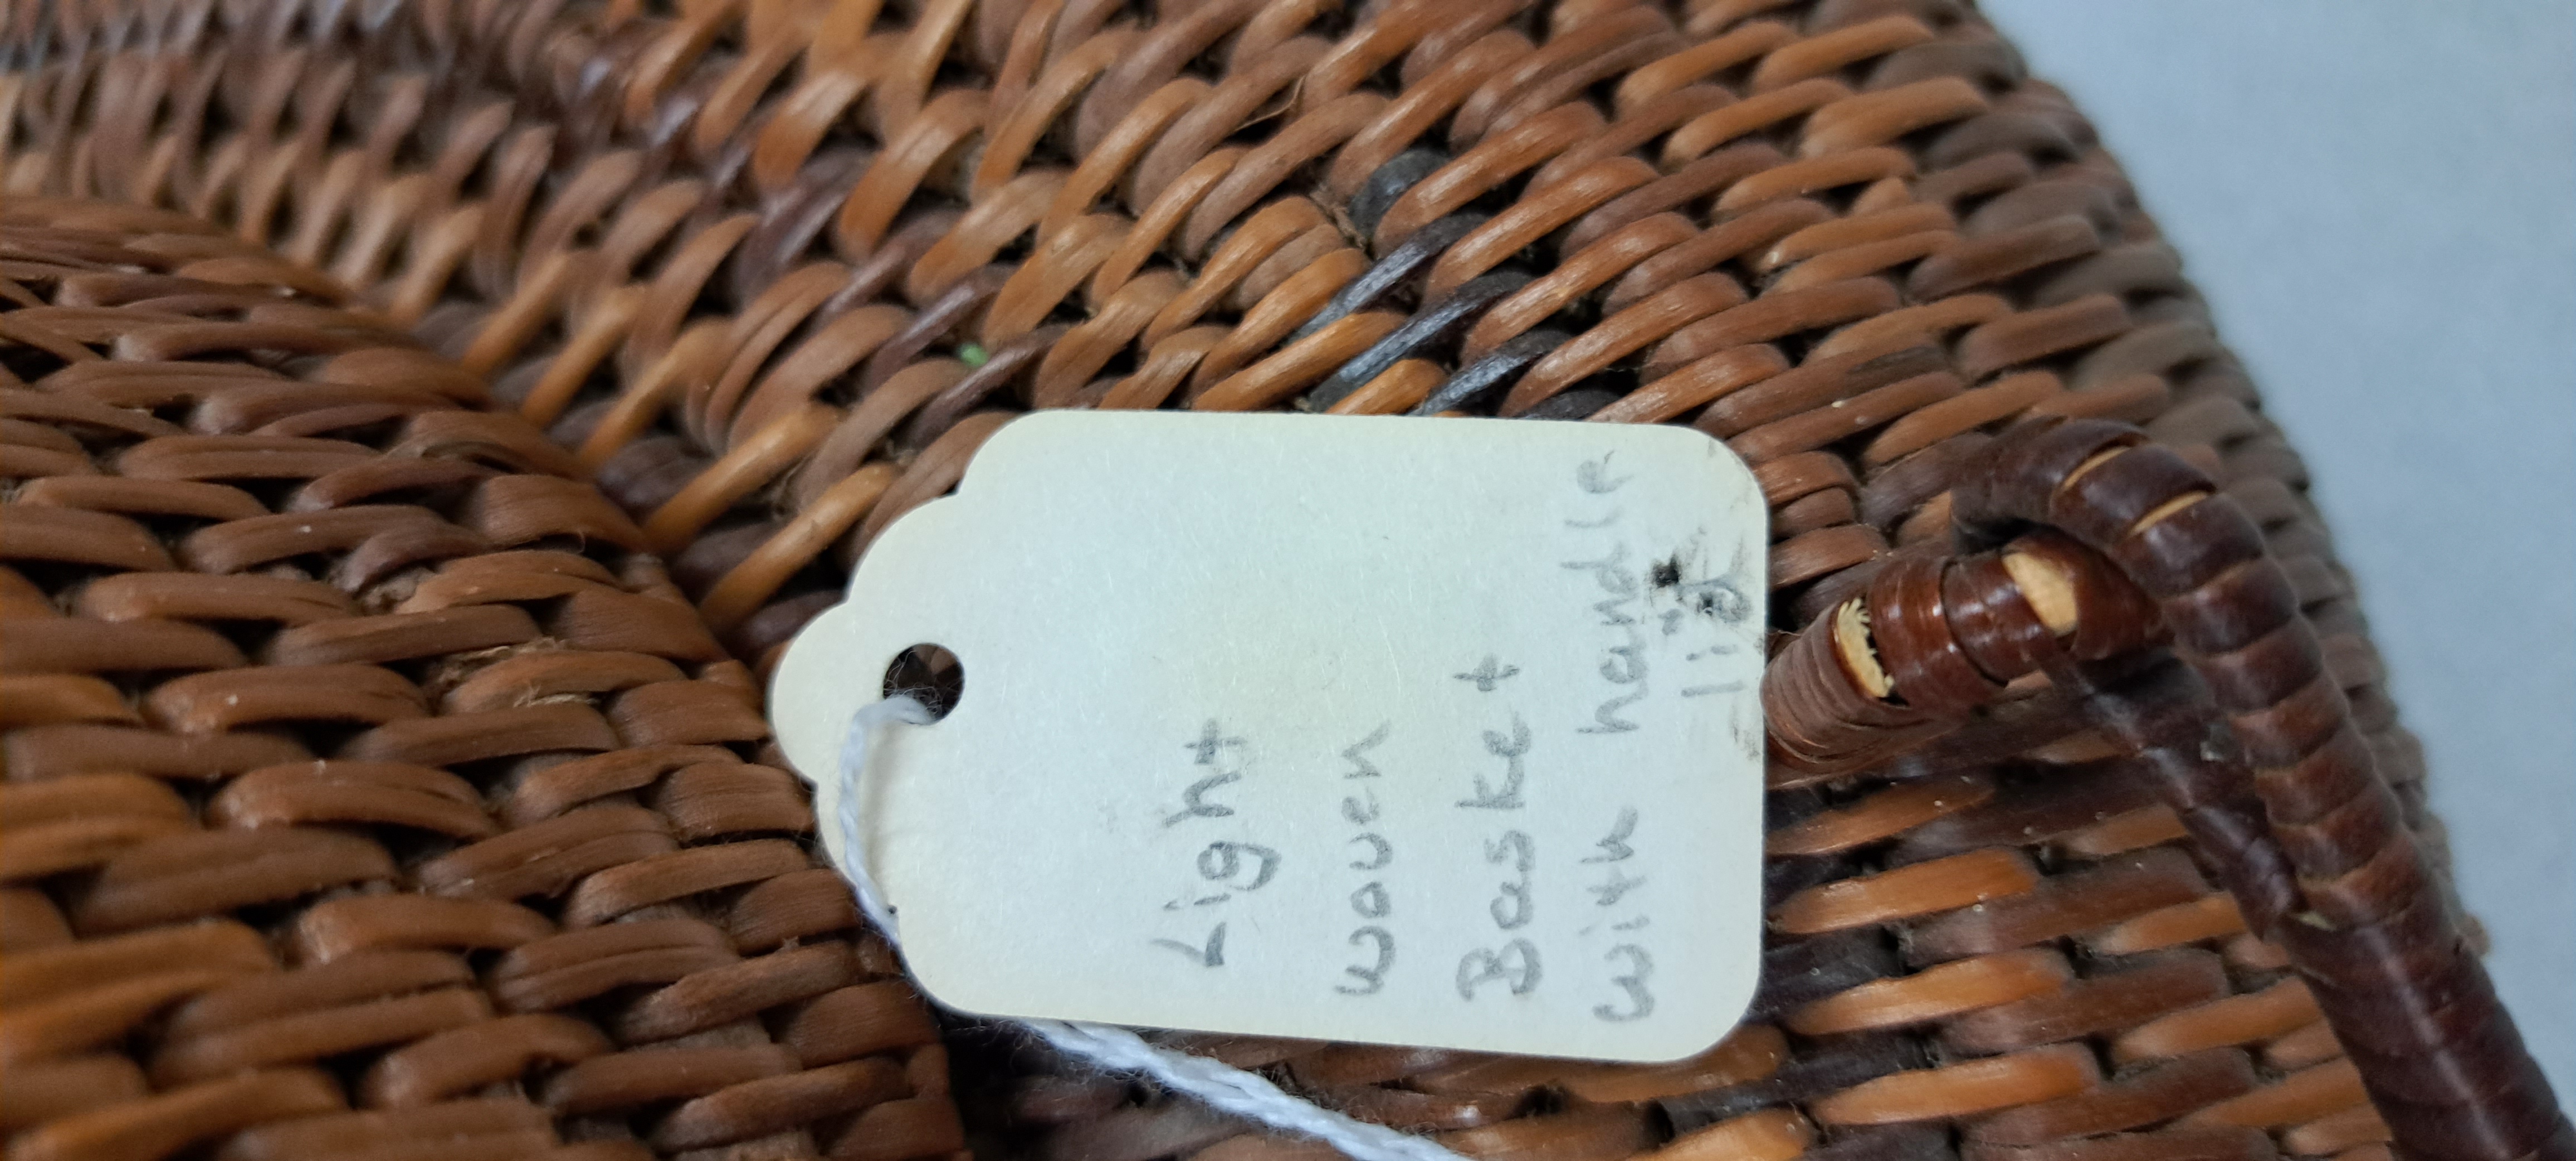 Light
woven
Basket
with handle
lid